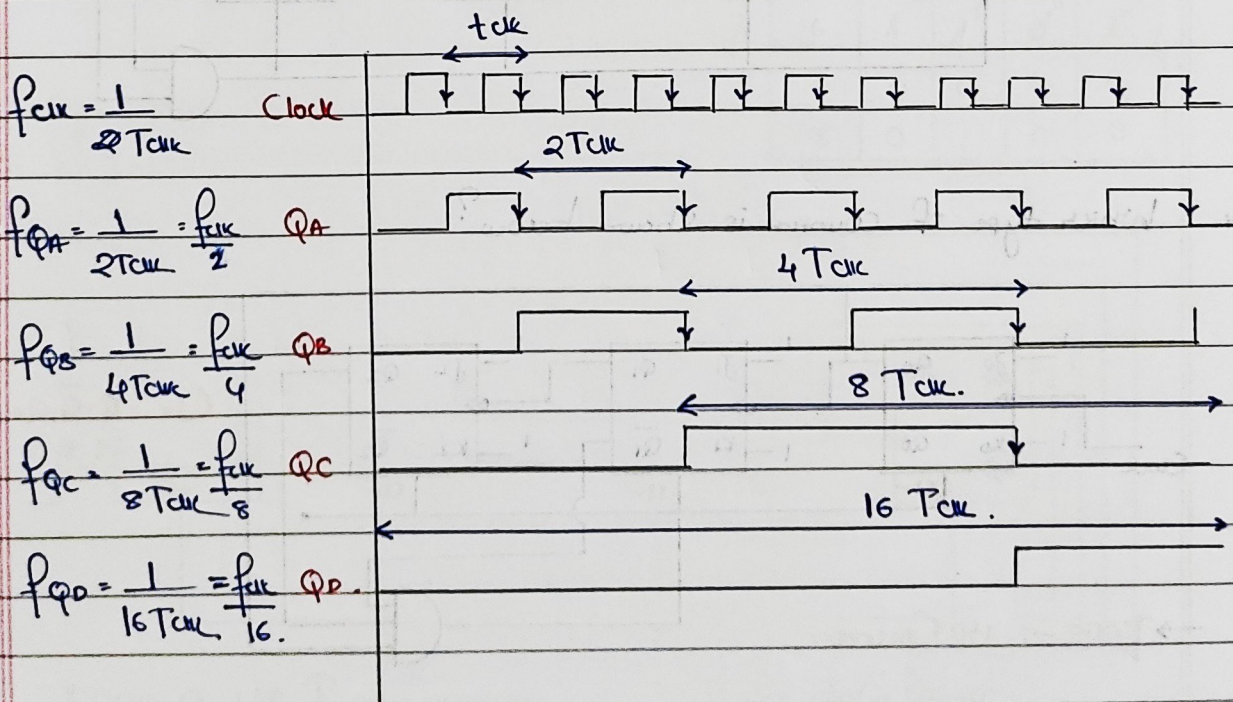 tclk
fclk = 1/2Tclk Clock
2Tclk
fQA = 1/2Tclk = fclk/2 QA
4Tclk
fQB = 1/4Tclk = fclk/4 QB
8 Tclk.
fQC = 1/8Tclk = fclk/8 QC
16 Tclk.
fQD = 1/16Tclk. = fclk/16. QD.